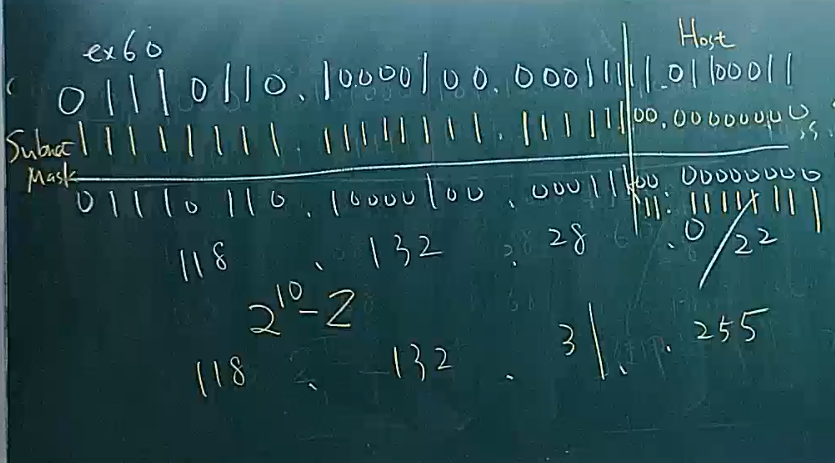 ex6ö
Host
01110110.10000100.00011111.01100011
Subnet Mask
11111111.11111111.11111100.00000000
01110110.10000100.00011100.00000000
11.11111111
118.132.28.0/22
2¹⁰-2
118.132.31.255